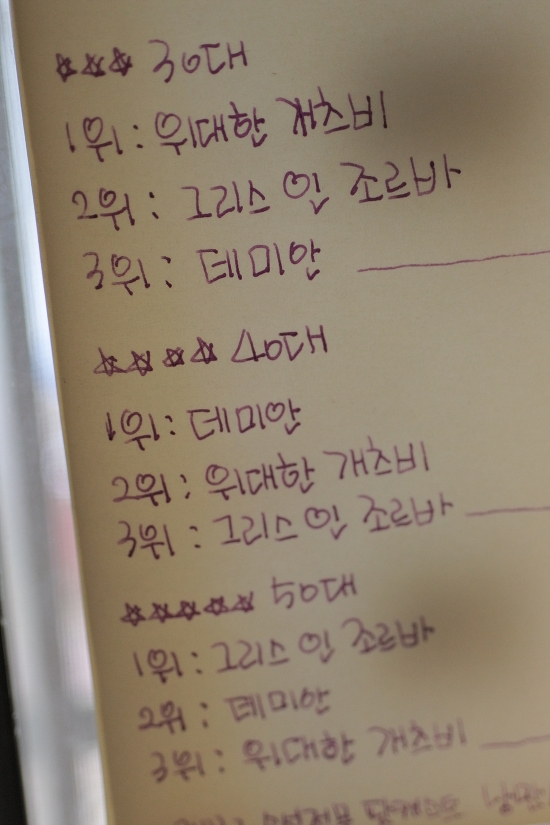 ☆☆☆ 30대
1위: 위대한 개츠비
2위: 그리스인 조르바
3위: 데미안
☆☆☆☆ 40대
1위: 데미안
2위: 위대한 개츠비
3위: 그리스인 조르바
☆☆☆☆☆ 50대
1위: 그리스인 조르바
2위: 데미안
3위: 위대한 개츠비